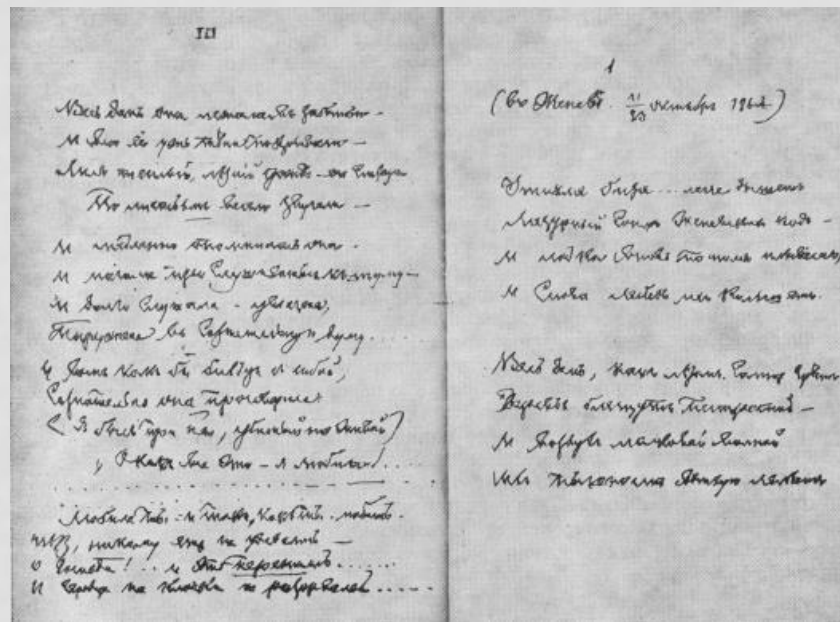 III
Весь день она лежала въ забытьи —
И всю ее ужъ тѣни покрывали —
Лилъ теплый, лѣтній дождь — его струи
По листьямъ весело звучали —
И медленно опомнилась она —
И начала прислушиваться къ шуму —
И долго слушала — увлечена,
Погружена въ сознательную думу....
И вотъ, какъ бы бесѣдуя съ собой,
Сознательно она проговорила:
(Я былъ при ней, убитый но живой)
„О какъ все это — я любила!....
Любила ты — и такъ, какъ ты, любить —
Нѣтъ, никому еще не удавалось —
О Господи!.. и это пережить......
И сердце на клочки не разорвалось.....
1
(Въ Женевѣ. 11/23 октября 1864)
Утихла биза... легче дышетъ
Лазурный сонмъ Женевскихъ водъ —
И лодка вновь по нимъ плыветъ,
И снова лебедь ихъ колышетъ.
Весь день, какъ лѣтомъ, солнце грѣетъ
Деревья блещутъ пестротой —
И воздухъ ласковой волной
Ихъ пышность ветхую лелѣетъ